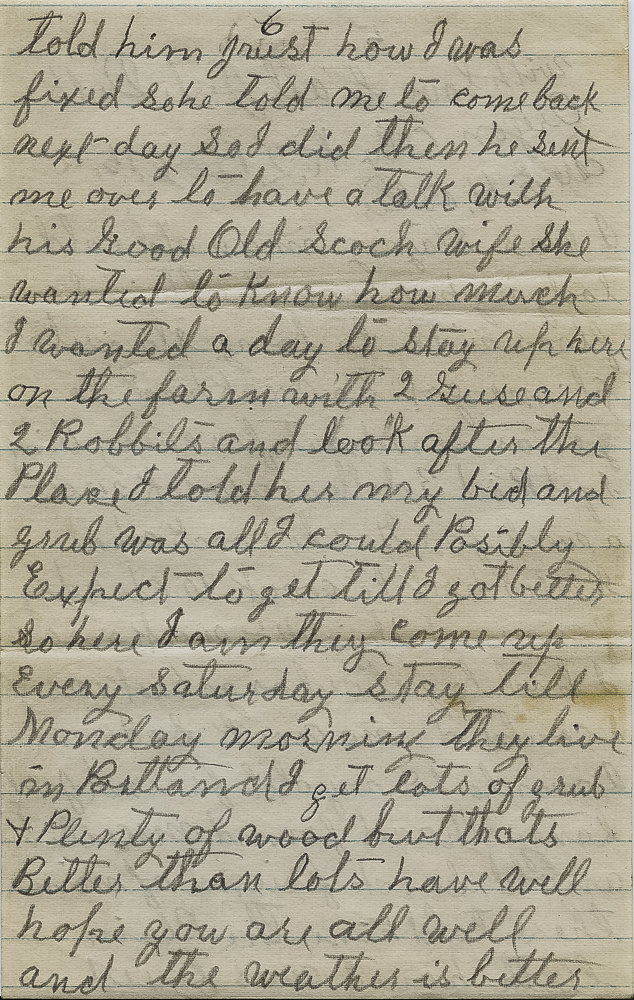 6
told him Just how I was
fixed so he told me to come back
next day So I did then he sent
me over to have a talk with
his Good Old Scoch wife She
wanted to Know how much
I wanted a day to stay up here
on the farm with 2 Guse and
2 Robbits and look after the
Place I told her my bed and
grub was all I could Posibly
Expect to get till I got better
So here I am they come up
Every Saturday stay till
Monday morning they live
in Portland I get lots of grub
& Plenty of wood but thats
Better than lots have well
hope you are all well
and the weather is better